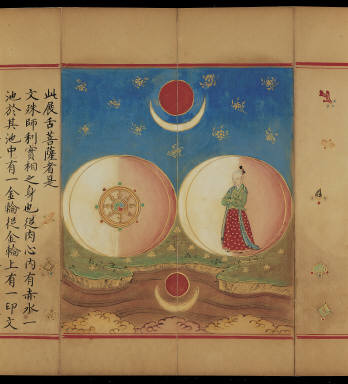 此展舌菩薩者是
文珠師利實相之身也從肉心內有赤水一
池於其池中有一金輪從金輪上有一印文